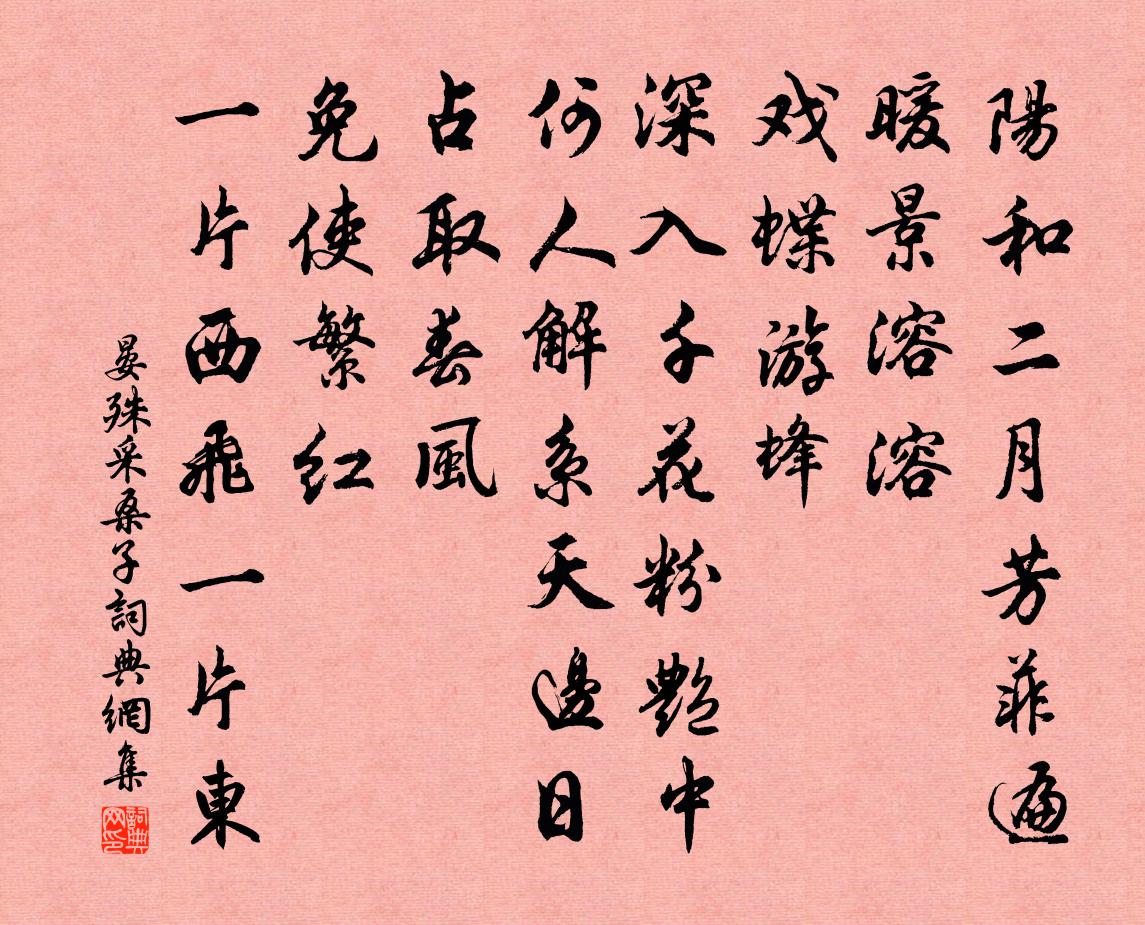 陽和二月芳菲遍
暖景溶溶
戏蝶游蜂
深入千花粉艷中
何人解系天邊日
占取春風
免使繁红
一片西飛一片東
晏殊采桑子詞典網集
詞典网印